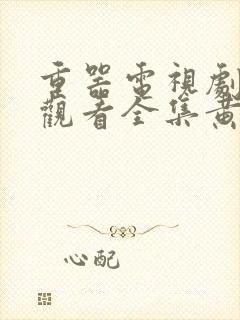 重器電視劇
觀看全集黃
心配